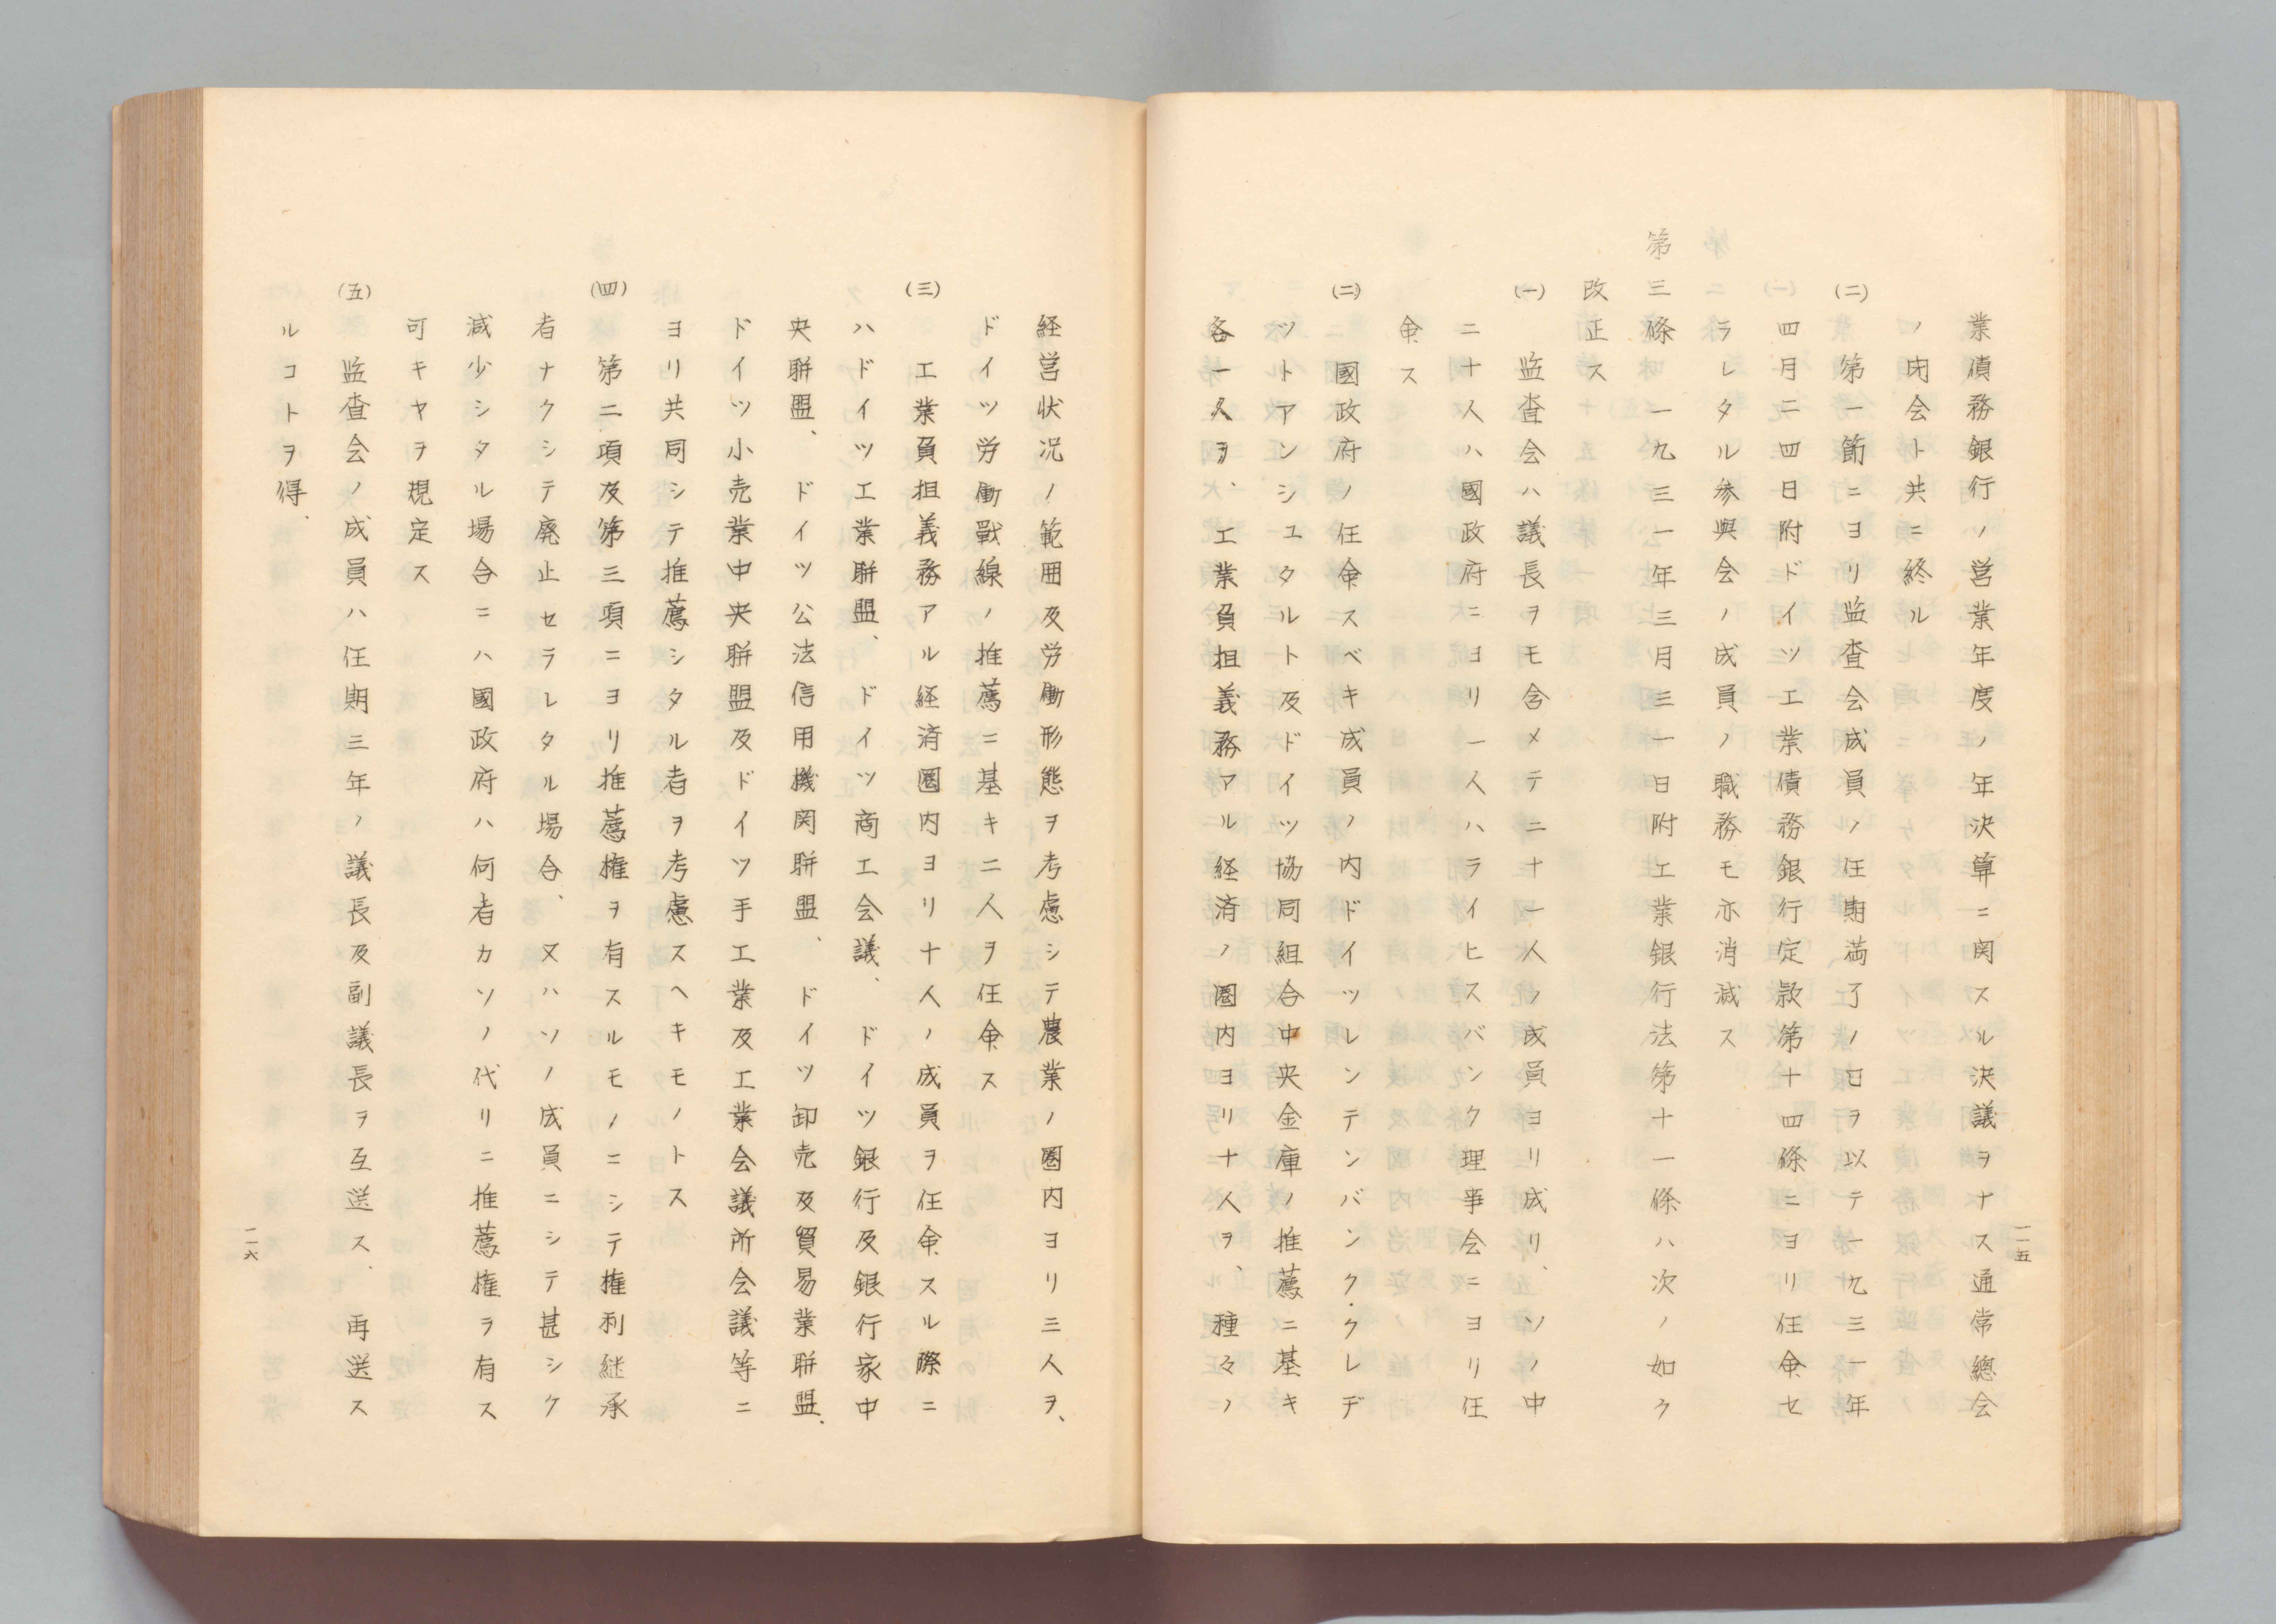 業債務銀行ノ営業年度ノ年決算ニ関スル決議ヲナス通常總会
ノ閉会ト共ニ終ル
(二) 第一節ニヨリ監査会成員ノ任期満了ノ日ヲ以テ一九三一年
四月二四日附ドイツ工業債務銀行定款第十四條ニヨリ任命セ
ラレタル参與会ノ成員ノ職務モ亦消滅ス
第三條 一九三一年三月三一日附工業銀行法第十一條ハ次ノ如ク
改正ス
(一) 監査会ハ議長ヲモ含メテ二十一人ノ成員ヨリ成リ、ソノ中
二十人ハ國政府ニヨリ一人ハライヒスバンク理事会ニヨリ任
命ス
(二) 國政府ノ任命スベキ成員ノ内ドイツレンテンバンク・クレヂ
ツトアンシユタルト及ドイツ協同組合中央金庫ノ推薦ニ基キ
各一人ヲ、工業負担義務アル経済ノ圏内ヨリ十人ヲ、種々ノ
一一五
経営状況ノ範囲及労働形態ヲ考慮シテ農業ノ圏内ヨリ三人ヲ、
ドイツ労働戰線ノ推薦ニ基キ二人ヲ任命ス
(三) 工業負担義務アル経済圏内ヨリ十人ノ成員ヲ任命スル際ニ
ハドイツ工業聯盟、ドイツ商工会議、ドイツ銀行及銀行家中
央聯盟、ドイツ公法信用機関聯盟、ドイツ卸売及貿易業聯盟、
ドイツ小売業中央聯盟及ドイツ手工業及工業会議所会議等ニ
ヨリ共同シテ推薦シタル者ヲ考慮スヘキモノトス
(四) 第二項及第三項ニヨリ推薦権ヲ有スルモノニシテ権利継承
者ナクシテ廃止セラレタル場合、又ハソノ成員ニシテ甚シク
減少シタル場合ニハ國政府ハ何者カソノ代リニ推薦権ヲ有ス
可キヤヲ規定ス
(五) 監査会ノ成員ハ任期三年ノ議長及副議長ヲ互選ス、再選ス
ルコトヲ得、
一一六